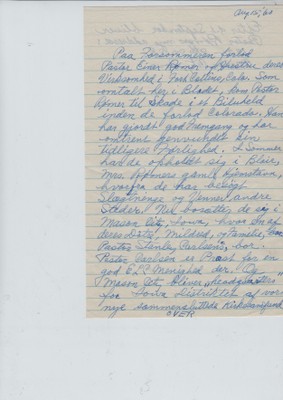 Aug 15, 60
Paa Forsommeren forlod
Pastor Einer Rømer og Hustru deres
Virksomhed i Fort Collins, Colo. Som
omtalt her i Bladet, kom Pastor
Rømer til Skade i et Biluheld
inden de forlod Colorado. Han
har gjort god Fremgang og har
omtrent genvundet sin
tidligere Førlighed. I Sommer
har de opholdt sig i Blair,
Mrs. Rømers gamle Hjemstavn,
hvorfra de har besøgt
Slægtninge og Venner andre
Steder. Nu bosætter de sig i
Mason City, Iowa, hvor en af
deres Døtre, Mildred, og Familie,
Pastor Stanley Carlsens, bor.
Pastor Carlsen er Præst for en
god E.L.C. Menighed der. Og
Mason City bliver "Headquarters"
for Iowa Distriktet af vor
nye sammensluttede Kirkesamfund.
OVER